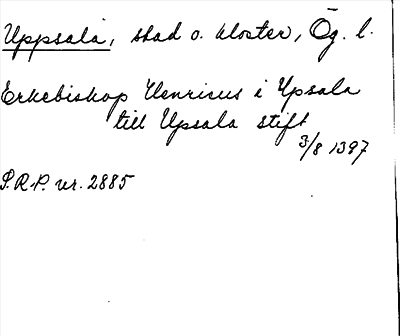 Uppsala, stad o. kloster, Ög. l.
Erkebiskop Henricus i Upsala
till Upsala stift
3/8 1397
S.R.P. nr. 2885